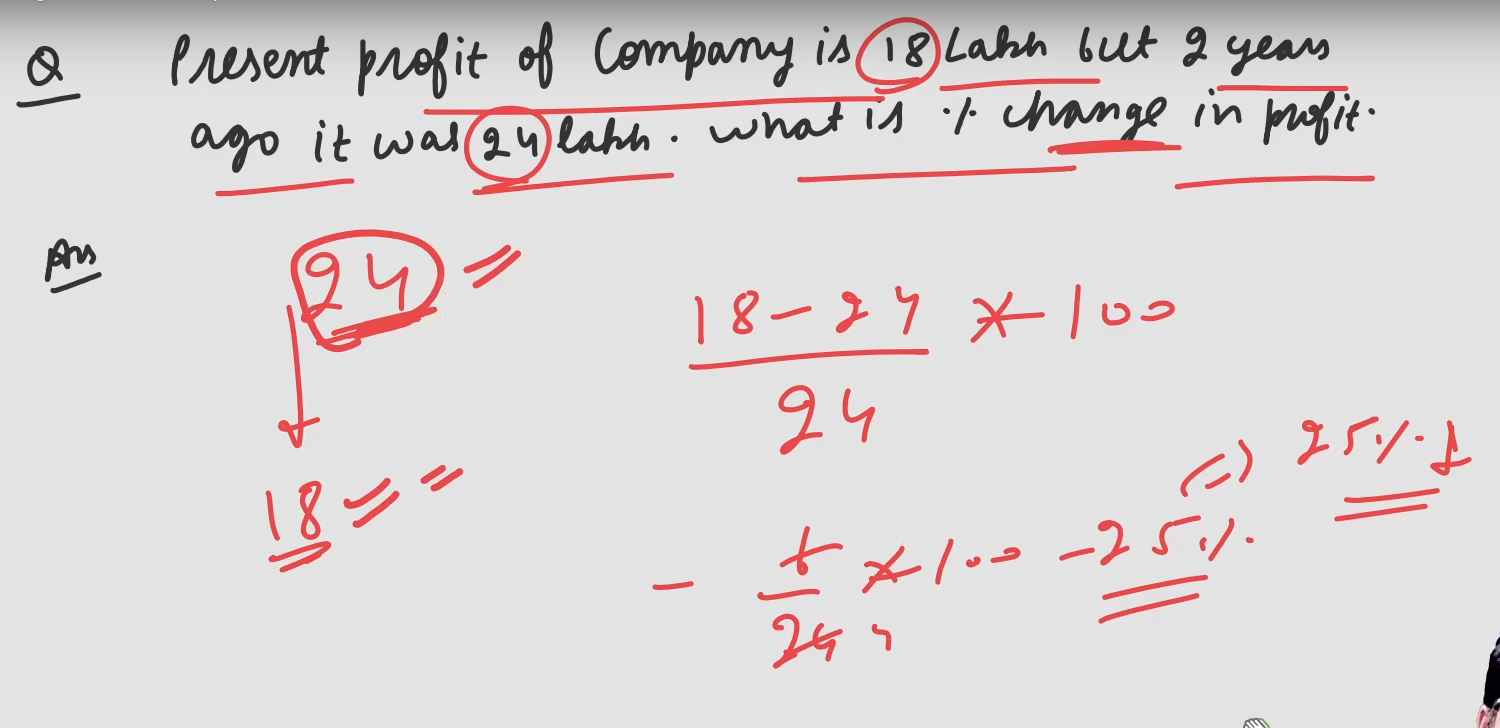 Q Present profit of Company is 18 Lakh but 2 years
ago it was 24 lakh. what is % change in profit.
Ans
24
18
18-24 × 100
24
- 6 × 100 -25%
24 4
(-) 25% ↓